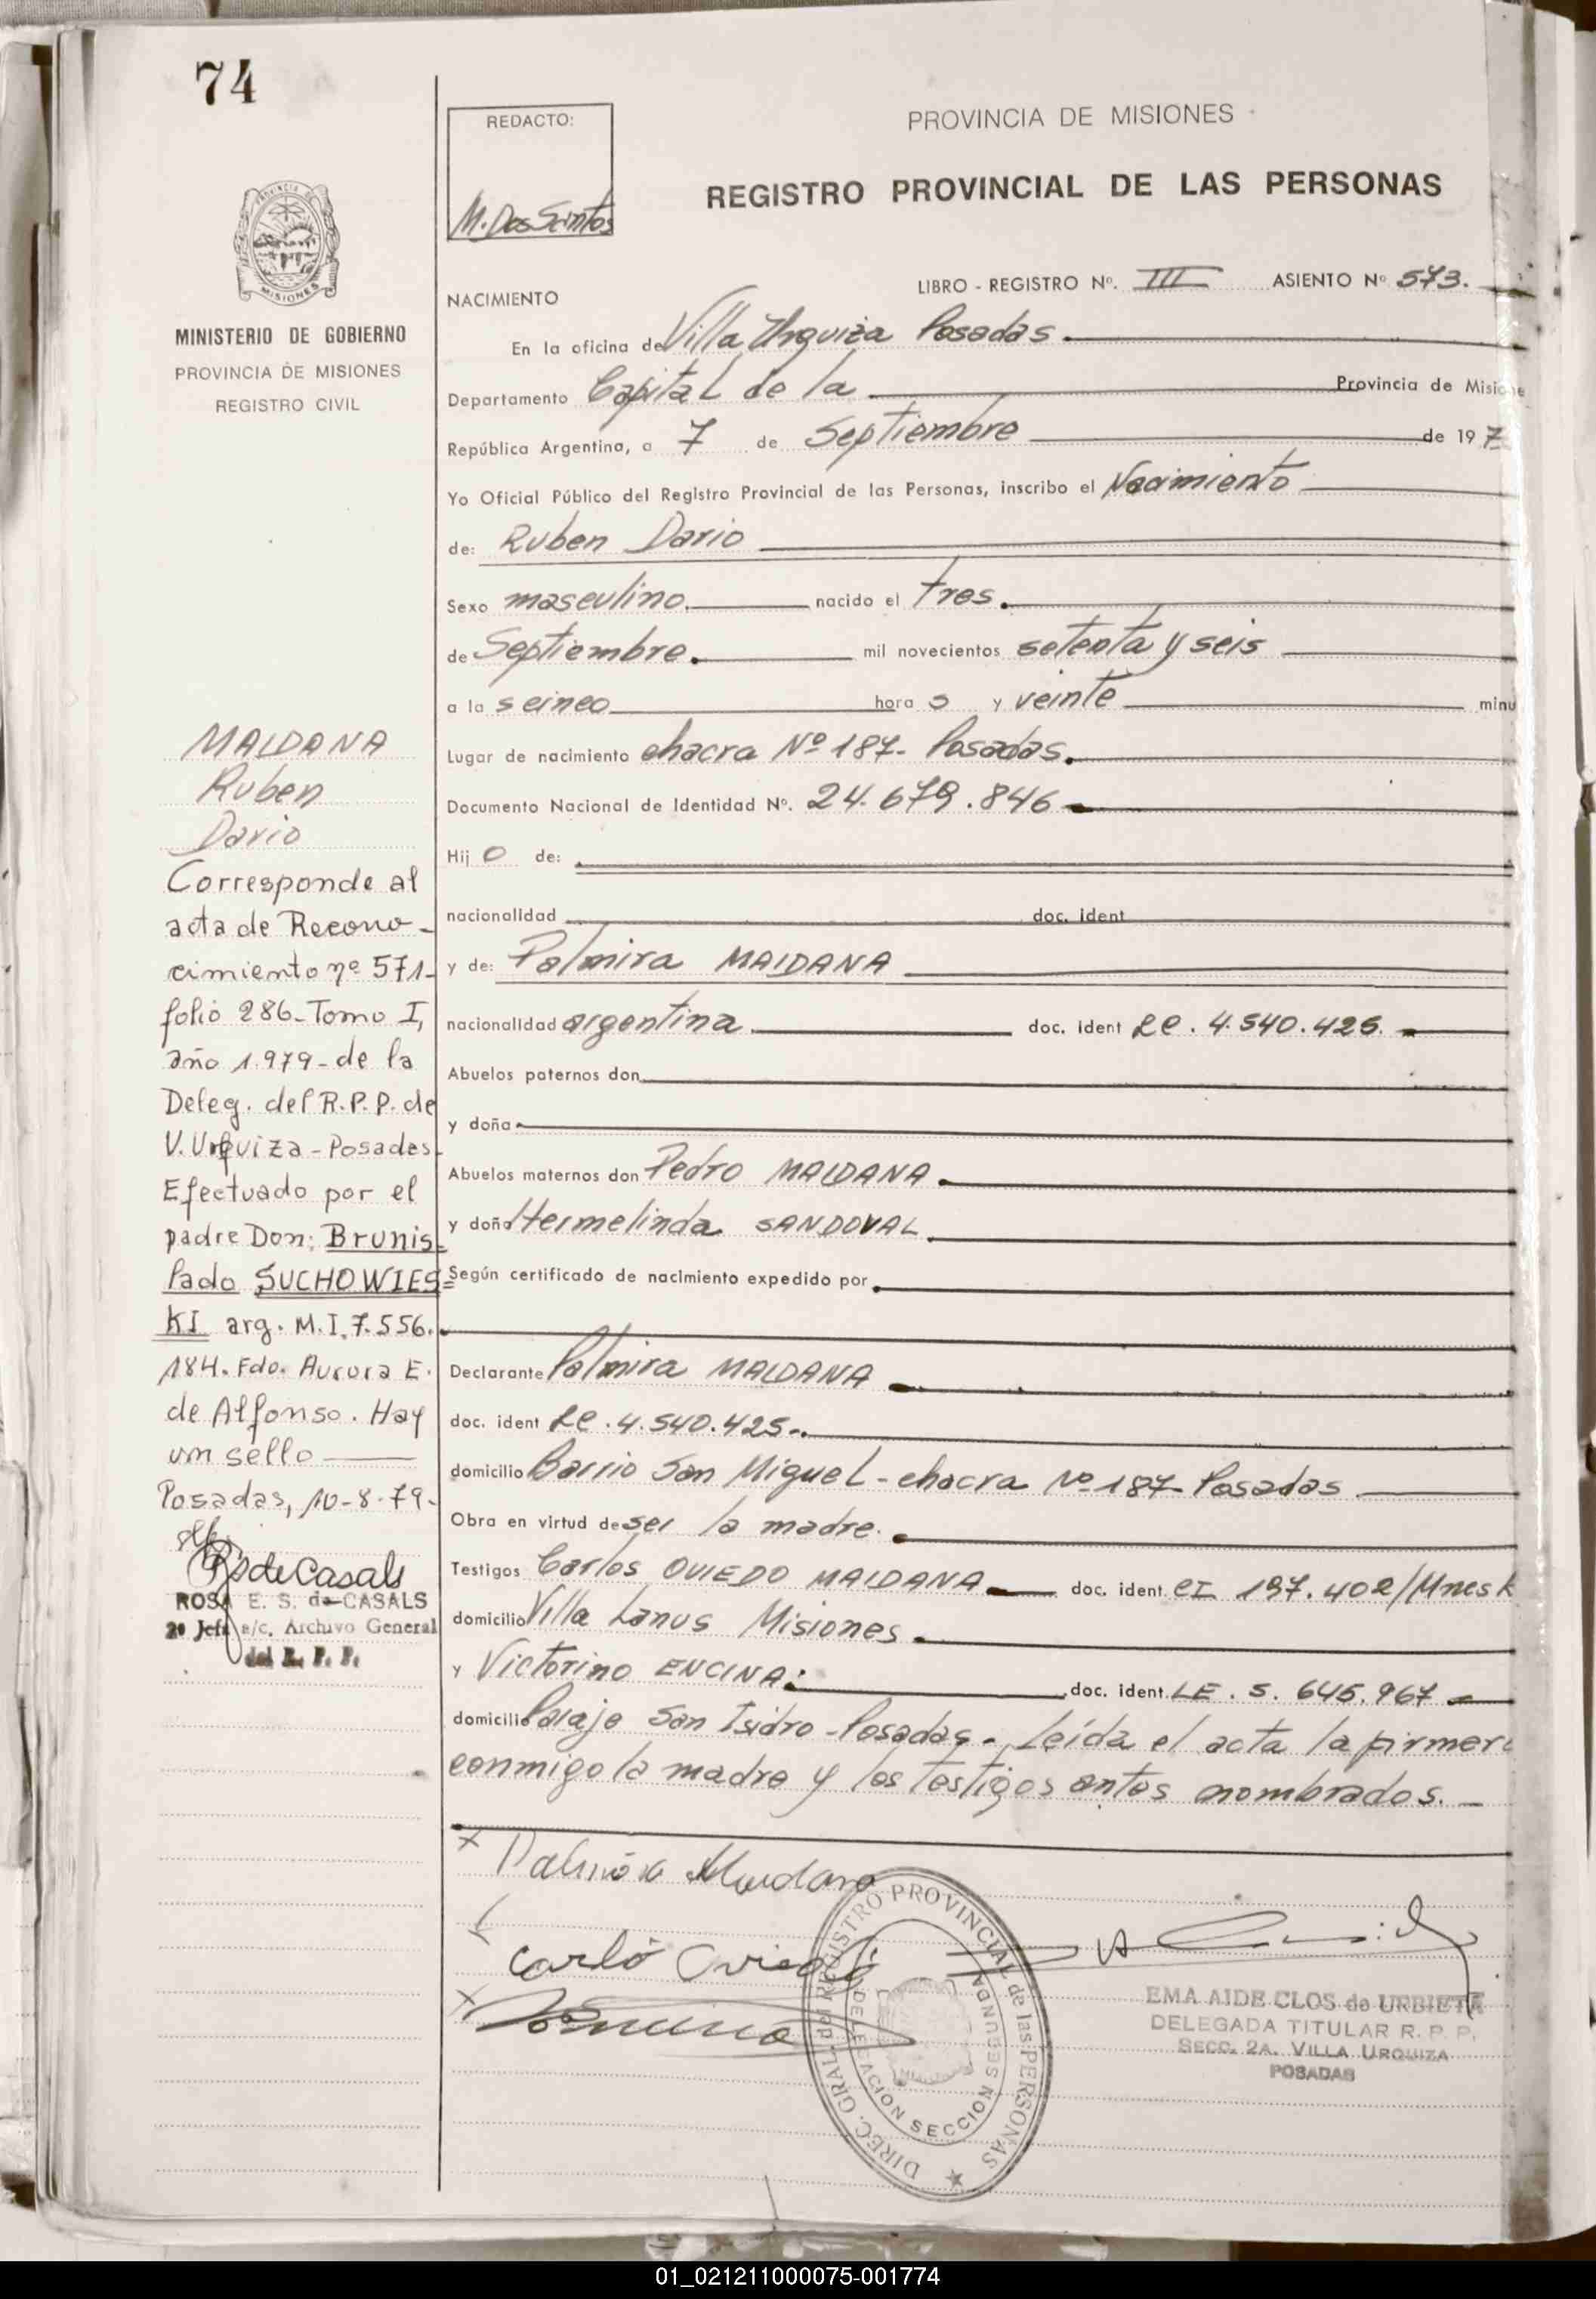 74
REDACTO:
M. Dos Santos
PROVINCIA DE MISIONES
REGISTRO PROVINCIAL DE LAS PERSONAS
LIBRO - REGISTRO Nº. III ASIENTO Nº 573.
PROVINCIA DE
MISIONES
MINISTERIO DE GOBIERNO
PROVINCIA DE MISIONES
REGISTRO CIVIL
NACIMIENTO
En la oficina de Villa Urquiza Posadas
Departamento Capital de la Provincia de Misione
República Argentina, a 7 de Septiembre de 197
Yo Oficial Público del Registro Provincial de las Personas, inscribo el Nacimiento
de: Ruben Dario
Sexo masculino. nacido el tres.
de Septiembre. mil novecientos setenta y seis
a la s cinco hora s y veinte minu
Lugar de nacimiento chacra Nº 187- Posadas.
Documento Nacional de Identidad Nº. 24.679.846
Hij o de:
nacionalidad doc. ident
y de: Palmira MAIDANA
nacionalidad argentina doc. ident LC. 4.540.425.
Abuelos paternos don
y doña
Abuelos maternos don Pedro MAIDANA.
y doña Hermelinda SANDOVAL
Según certificado de nacimiento expedido por
Declarante Palmira MAIDANA
doc. ident LC. 4.540.425-.
domicilio Barrio San Miguel - chacra Nº 187- Posadas
Obra en virtud de ser la madre.
Testigos Carlos OVIEDO MAIDANA doc. ident. CI 197.402/Mnes
domicilio Villa Lanus Misiones
y Victorino ENCINA: doc. ident. LE. 5. 645.967
domicilio Paraje San Isidro - Posadas. Leída el acta la firmer
conmigo la madre y los testigos antes nombrados. -
MAIDANA
Ruben
Dario
Corresponde al
acta de Recono-
cimiento nº 571-
folio 286- Tomo I,
año 1.979- de la
Deleg. del R.P.P. de
V. Urquiza - Posadas
Efectuado por el
padre Don: Brunis-
lado SUCHOWIES=
KI arg. M.I. 7.556.
184. Fdo. Aurora E.
de Alfonso. Hay
un sello
Posadas, 10-8-79-
R S de Casals
ROSA E. S. de CASALS
2º Jefe a/c. Archivo General
del R. P. P.
Palmira Maidana
Carlo Oviedo
DIREC. GRAL. del REGISTRO PROVINCIAL de las PERSONAS
DELEGACION SECCION SEGUNDA
EMA AIDE CLOS de URBIETA
DELEGADA TITULAR R. P. P.
SECC. 2A. VILLA URQUIZA
POSADAS
01_021211000075-001774